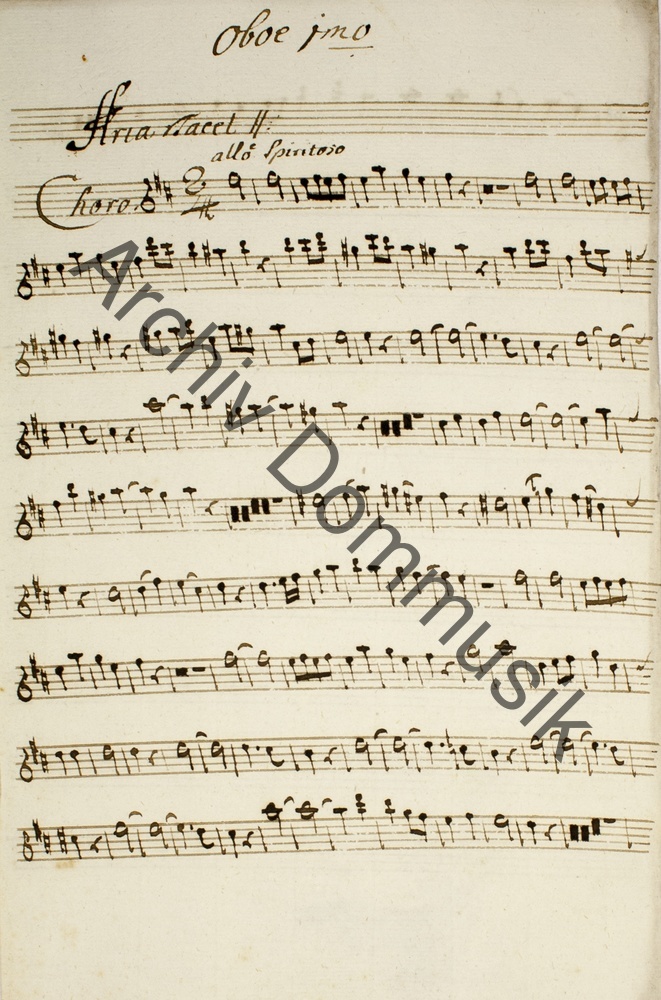 Oboe jmo
Aria Tacet
allo. Spiritoso
Choro.
Archiv Dommusik